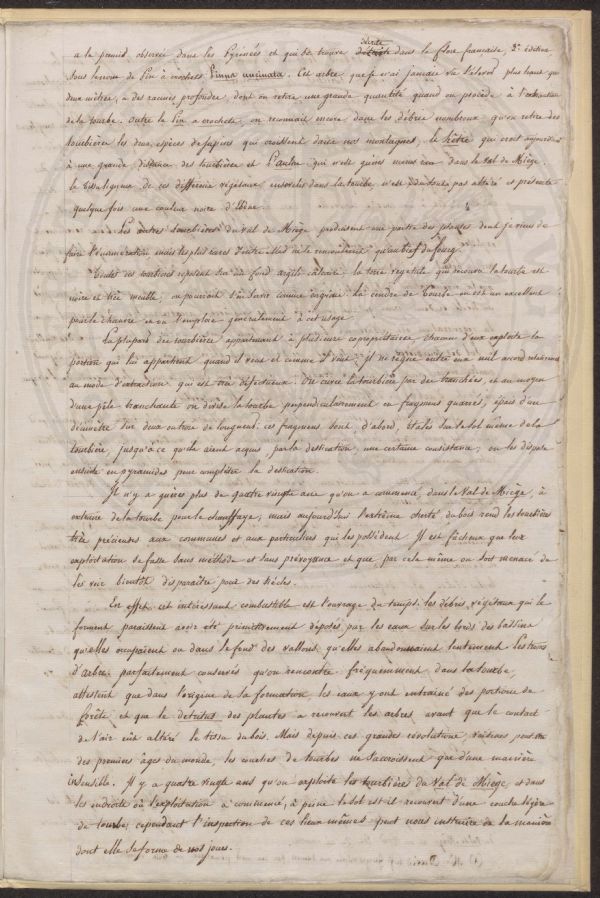 a le premier observée dans les Pyrénées et qui se trouve décrite dans la flore française, 3e édition,
sous le nom de Pin à crochets Pinus uncinata. Cet arbre que je n'ai jamais vu s'élever plus haut que
deux mètres, a des racines profondes, dont on retire une grande quantité quand on procède à l'extraction
de la tourbe. outre le Pin à crochets, on reconnait encore dans les débris nombreux qu'on retire des
tourbières les deux espèces de sapins qui croissent dans nos montagnes, le hêtre qui croit aujourd'hui
à une grande distance des tourbières et l'aulne qui n'est guères moins rare dans le Val de Miège.
le tissu ligneux de ces différens végétaux ensevelis dans la tourbe, n'est point altéré et présente
quelquefois une couleur noire d'ébène.
Les autres tourbières du val de Miège produisent une partie des plantes dont je viens de
faire l'énumération mais les plus rares d'entre elles ne se rencontrent qu'au bief du fourg.
Toutes ces tourbières reposent sur un fond argilo calcaire. la terre végétale qui recouvre la tourbe est
noire et très meuble; on pourrait s'en servir comme engrais. la cendre de tourbe en est un excellent
pour le chanvre et on l'emploie généralement à cet usage.
La plupart des tourbières appartenant à plusieurs copropriétaires, chacun d'eux exploite la
portion qui lui appartient quand il veut et comme il veut. Il ne règne entre eux nul accord relativement
au mode d'extraction qui est très défectueux. On cave la tourbière par des tranchées, et au moyen
d'une pêle tranchante on divise la tourbe perpendiculairement en fragmens quarrés, épais d'un
décimètre sur deux ou trois de longueur. ces fragmens sont d'abord étalés sur le sol même de la
tourbière jusqu'à ce qu'ils aient acquis, par la dessication, une certaine consistance; on les dispose
ensuite en pyramides pour compléter la dessication.
Il n'y a guères plus de quatre vingts ans qu'on a commencé, dans le Val de Miège, à
extraire de la tourbe pour le chauffage; mais aujourd'hui l'extrême cherté du bois rend les tourbières
très précieuses aux communes et aux particuliers qui les possèdent. Il est fâcheux que leur
exploitation se fasse sans méthode et sans prévoyance et que par cela même on soit menacé de
les voir bientôt disparaître pour des siècles.
En effet cet intéressant combustible est l'ouvrage du temps. les débris végétaux qui le
forment paraissent avoir été primitivement déposés par les eaux sur les bords des bassins
qu'elles occupaient ou dans le fond des vallons qu'elles abandonnaient lentement. Les troncs
d'arbres parfaitement conservés qu'on rencontre fréquemment dans la tourbe,
attestent que dans l'origine de sa formation les eaux y ont entrainé des portions de
forêts et que le detritus des plantes a recouvert les arbres avant que le contact
de l'air eut altéré le tissu du bois. Mais depuis ces grandes révolutions, voisines peut être
des premiers âges du monde, les couches de tourbes ne s'accroissent que d'une manière
insensible. Il y a quatre vingts ans qu'on exploite les tourbières du Val de Miège, et dans
les endroits où l'exploitation a commencé, à peine le sol est il recouvert d'une couche légère
de tourbe; cependant l'inspection de ces lieux mêmes peut nous instruire de la manière
dont elle se forme de nos jours.